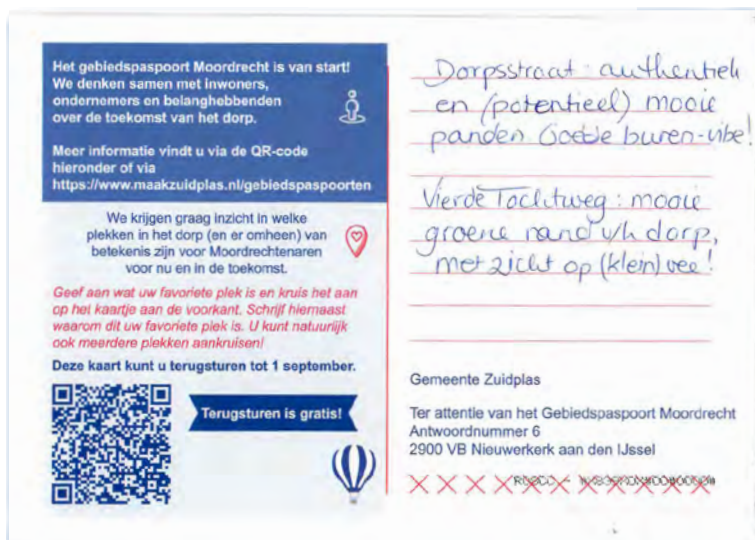 Het gebiedspaspoort Moordrecht is van start!
We denken samen met inwoners,
ondernemers en belanghebbenden
over de toekomst van het dorp.
Meer informatie vindt u via de QR-code
hieronder of via
https://www.maakzuidplas.nl/gebiedspaspoorten
We krijgen graag inzicht in welke
plekken in het dorp (en er omheen) van
betekenis zijn voor Moordrechtenaren
voor nu en in de toekomst.
Geef aan wat uw favoriete plek is en kruis het aan
op het kaartje aan de voorkant. Schrijf hiernaast
waarom dit uw favoriete plek is. U kunt natuurlijk
ook meerdere plekken aankruisen!
Deze kaart kunt u terugsturen tot 1 september.
Terugsturen is gratis!
Dorpsstraat: authentiek
en (potentieel) mooie
panden Goede buren-vibe!
Vierde Tochtweg: mooie
groene rand v/h dorp,
met zicht op (klein)vee!
Gemeente Zuidplas
Ter attentie van het Gebiedspaspoort Moordrecht
Antwoordnummer 6
2900 VB Nieuwerkerk aan den IJssel